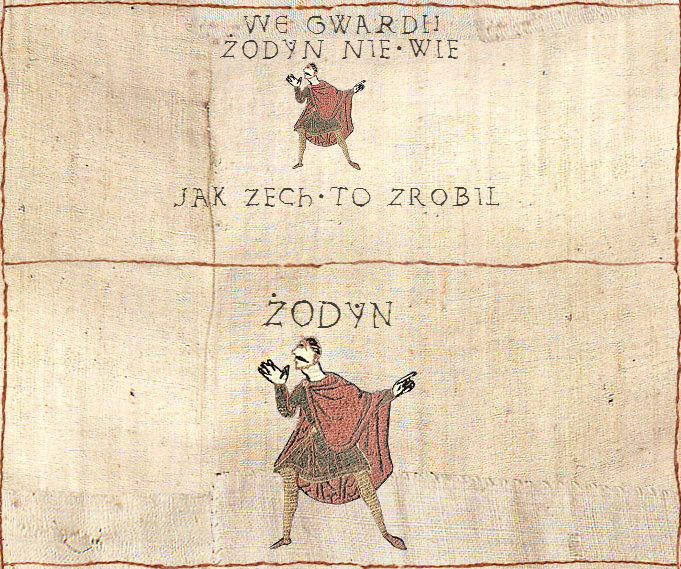 WE GWARDII
ŻODYN NIE·WIE
JAK ZECh·TO ZROBIL
ŻODYN